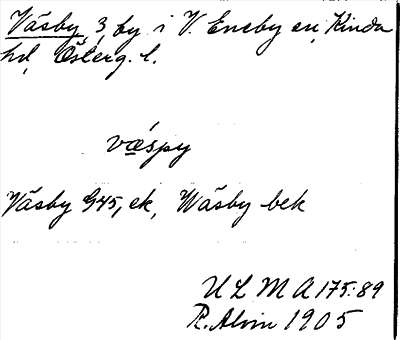 Väsby, 3, by i V. Eneby sn, Kinda
hd, Österg. l.
vǽspy
Väsby G45, ek, Wäsby bek
ULMA 175:89
R. Alvin 1905